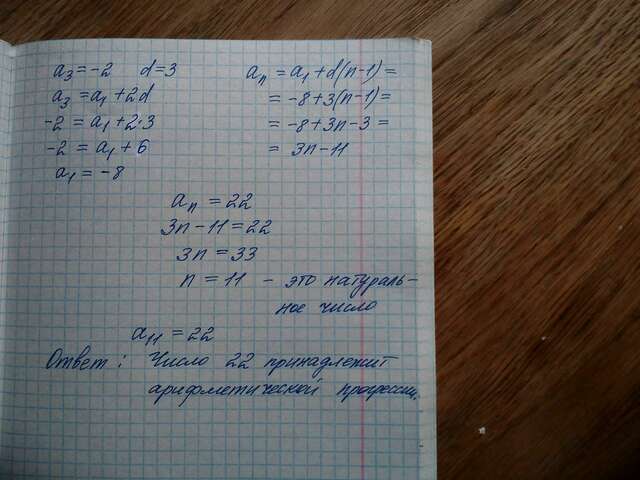 a₃ = -2 d=3
a₃ = a₁ + 2d
-2 = a₁ + 2·3
-2 = a₁ + 6
a₁ = -8
aₙ = a₁ + d(n-1) =
= -8+3(n-1) =
= -8+3n-3 =
= 3n-11
aₙ = 22
3n-11 = 22
3n = 33
n = 11 - это натураль-
ное число
a₁₁ = 22
Ответ: Число 22 принадлежит
арифметической прогрессии.